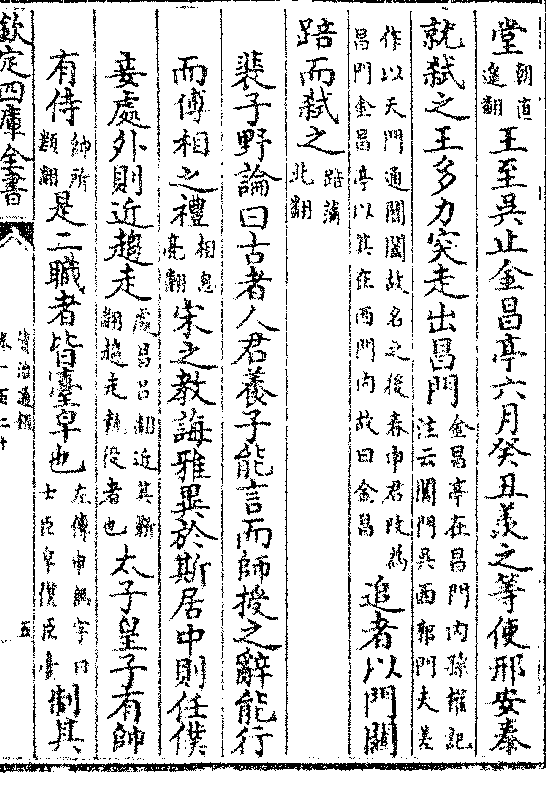 堂朝直遥翻王至吳止金昌亭六月癸丑羨之等使邢安泰
就弑之王多力突走出昌門金昌亭在昌門内孫權記注云閶門吳西郭門夫差
作以天門通閶闔故名之後春申君改為昌門金昌亭以其在西門内故曰金昌追者以門關
踣而弑之踣蒲北翻
裴子野論曰古者人君養子能言而師授之辭能行
而傅相之禮相息亮翻宋之教誨雅異於斯居中則任僕
妾處外則近趨走處昌呂翻近其靳翻趨走執役者也太子皇子有帥
有侍帥所類翻是二職者皆臺皁也左傳申無宇曰士臣皁僕臣臺制其
欽定四庫全書
資治通鑑
卷一百二十
五